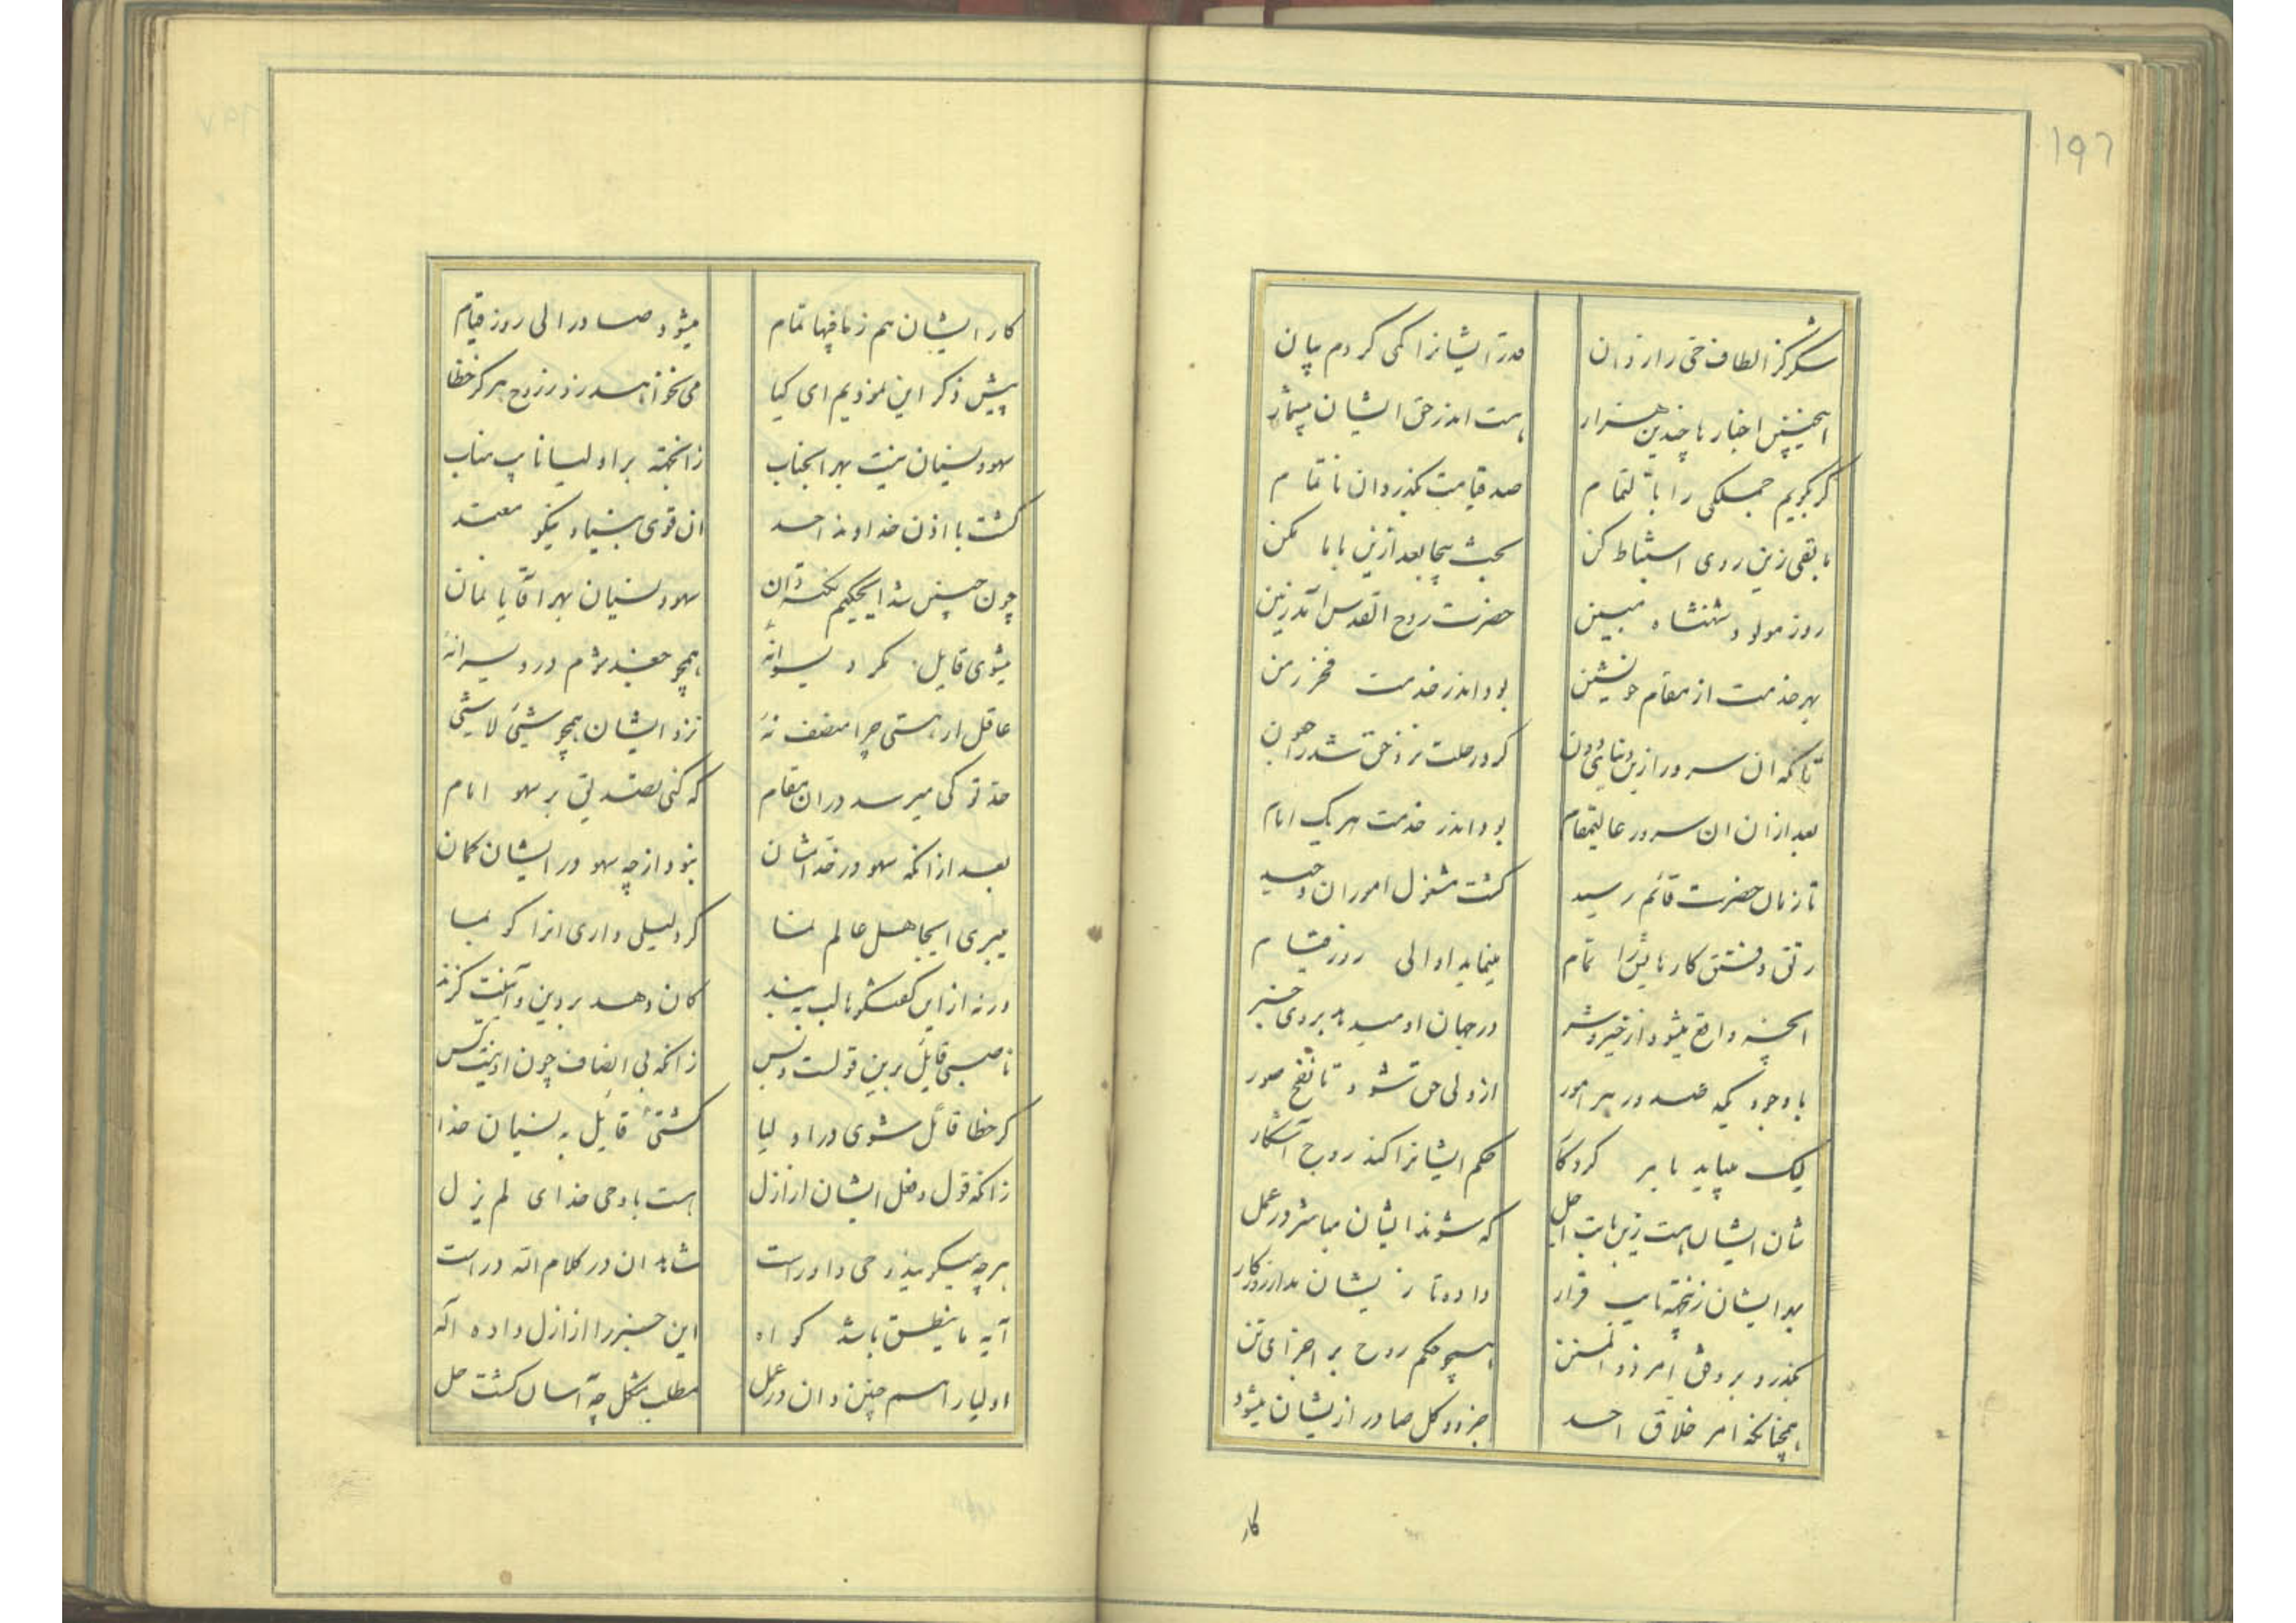 ۱۹۶
شکر کز الطاف حی رازدان
قدر ایشانرا کمی کردم بیان
اینچنین اخبار با چندین هزار
هست اندر حق ایشان بیشمار
گر بگویم جملگی را بالتمام
صد قیامت بگذرد آن ناتمام
مابقی زین روی استنباط کن
بحث بیجا بعد ازین بابا مکن
روز مولود شهنشاه مبین
حضرت روح القدس آمد زمین
بهر خدمت از مقام خویشتن
بود اندر خدمت فخر زمن
تا که ان سرور ازین دنیای دون
کرد رحلت نزد حق شد رهنمون
بعد ازان ان سرور عالیمقام
بود اندر خدمت هر یک امام
تا زمان حضرت قائم رسید
گشت مشغول امور ان وحید
رتق و فتق کارهایش را تمام
مینماید او الی روز قیام
انچه واقع میشود از خیر و شر
در جهان او میدهد بر وی خبر
با وجودیکه صدور هر امور
از ولی حق شود تا نفخ صور
لیک میاید بامر کردگار
حکم ایشانرا کند روح آشکار
شان ایشان هست زین بابت اجل
که شوند ایشان مباشر در عمل
بهر ایشان زینجهة نایب قرار
داده تا ز یشان مدار روزگار
بگذرد بر وفق امر ذو المنن
همچو حکم روح بر اجزای تن
همچنانکه امر خلاق احد
جزء و کل صادر از یشان میشود
کار
کار ایشان هم ز مافیها تمام
میشود صادر الی روز قیام
پیش ذکر این نمودیم ای کیا
می نخواهد سر زد از روح هرگز خطا
سهو و نسیان نیست بهر انجناب
زانجهة بر اولیا نایب مناب
گشت با اذن خداوند احد
ان قوی بنیاد نیکو معتمد
چون چنین شد ایحکیم نکته دان
سهو و نسیان بهر آقایانمان
میشوی قایل مگر دیوانۀ
همچو جغد شوم در ویرانۀ
عاقل ار هستی چرا منصف نۀ
نزد ایشان همچو شیئ لا شیئ
حد تو کی میرسد در ان مقام
که کنی تصدیق بر سهو امام
بعد از انکه سهو در خدامشان
نبود از چه سهو در ایشان گمان
میبری ایجاهل عالم نما
گر دلیلی داری انرا گو بما
ورنه از این گفتگوها لب ببند
کان دهد بر دین و آئینت گزند
ناصبی قایل برین قولست و بس
زانکه بی انصاف چون او نیست کس
گر خطا قائل شوی در اولیا
گشتۀ قایل به نسیان خدا
زانکه قول و فعل ایشان از ازل
هست با وحی خدای لم یزل
هرچه میگویند وحی داور است
شاهد ان در کلام الله در است
آیه ما ینطق باشد گواه
این خبر را از ازل داده اله
اولیا را هم چنین دان در عمل
مطلب مشکل چه آسان گشت حل